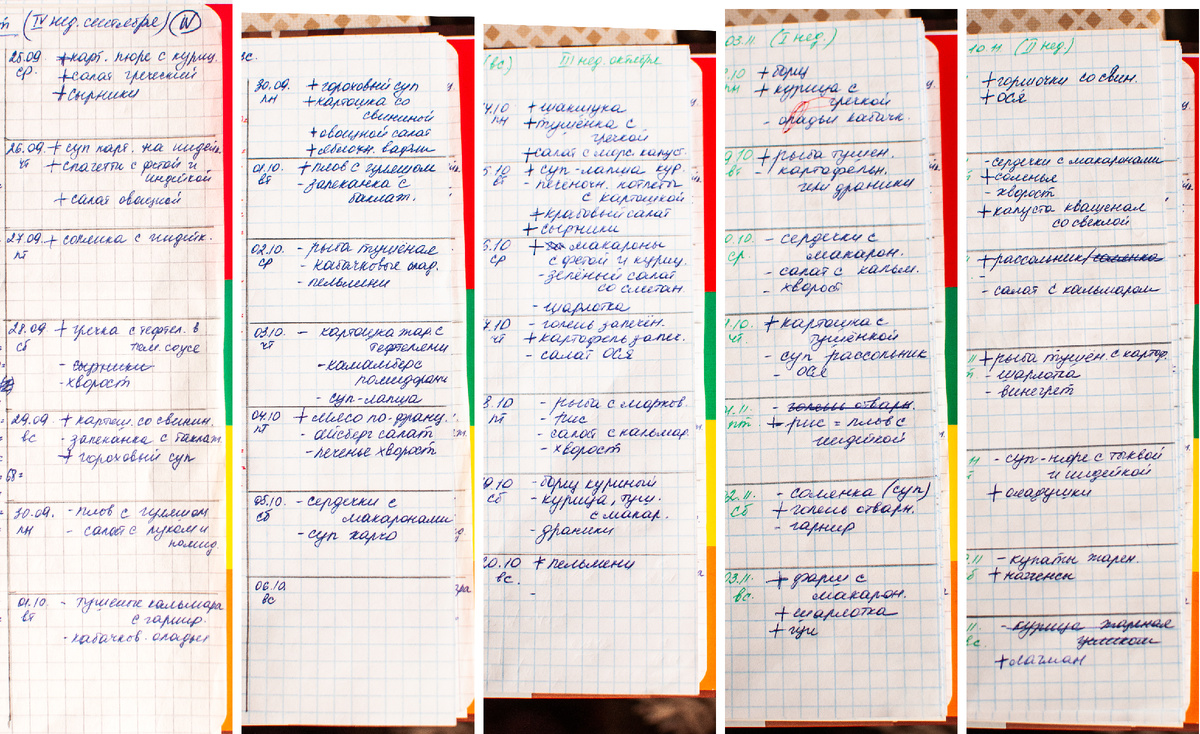 (IV нед. сентября) IV
25.09 + карт. пюре с куриц.
ср. + салат греческий
+ сырники
26.09 + суп карт. на индейк.
чт + спагетти с фетой и
индейкой
+ салат овощной
27.09. + солянка с индейк.
пт
28.09 + гречка с тефтел. в
сб том. соусе
- сырники
- хворост
29.09 + картош. со свинин.
вс - запеканка с баклаж.
+ гороховый суп
30.09. - плов с гуляшом
пн - салат с луком и
помид.
01.10. - тушеные кальмара
вт с гарнир.
- кабачков. оладьи
вс.
30.09. + гороховый суп
пн + картошка со
свининой
+ овощной салат
+ яблочн. вафли
01.10. + плов с гуляшом
вт - запеканка с
баклаж.
02.10. - рыба тушёная
ср - кабачковые олад.
- пельмени
03.10. - картошка жар. с
чт тефтелями
- камамбер с
помидорами
- суп-лапша
04.10 + мясо по-франц.
пт - айсберг салат
- печенье хворост
05.10. - сердечки с
сб макаронами
- суп харчо
06.10.
вс
(вс) III нед. октября
4.10 + шакшука
пн + тушёнка с
гречкой
+ салат с морс. капуст.
5.10 + суп-лапша кур.
вт - печеночн. котлеты
с картошкой
+ крабовый салат
+ сырники
6.10 + макароны
ср с фетой и куриц.
- зелёный салат
со сметан
- шарлотка
7.10 - голень запечён.
чт + картофель запеч.
- салат Ося
8.10 - рыба с морков.
пт - рис
- салат с кальмар.
- хворост
9.10 - борщ куриный
сб - курица, туш.
с макар.
- драники
20.10 + пельмени
вс. -
03.11 (I нед.)
8.10 + борщ
пн + курица с
гречкой
- оладьи кабачк.
9.10 + рыба тушен.
вт - картофельн.
или драники
0.10 - сердечки с
ср макарон.
- салат с кальм.
- хворост
1.10 + картошка с
чт тушёнкой
- суп рассольник
- Ося
01.11 - голень отварн.
пт + рис = плов с
индейкой
02.11. - солянка (суп)
сб + голень отварн.
- гарнир
03.11 + фарш с
вс. макарон.
+ шарлотка
+ щи
10 11 (II нед.)
+ горшочки со свин.
+ Ося
- сердечки с макаронами
+ соленья
- хворост
+ капуста квашеная
со свеклой
+ рассольник/солянка
-
- салат с кальмаром
+ рыба тушён. с картоф.
- шарлотка
- винегрет
- суп-пюре с тыквой
и индейкой
+ оладушки
- купаты жарен.
+ наггенсы
- курица жареная
целиком
вс. + лагман